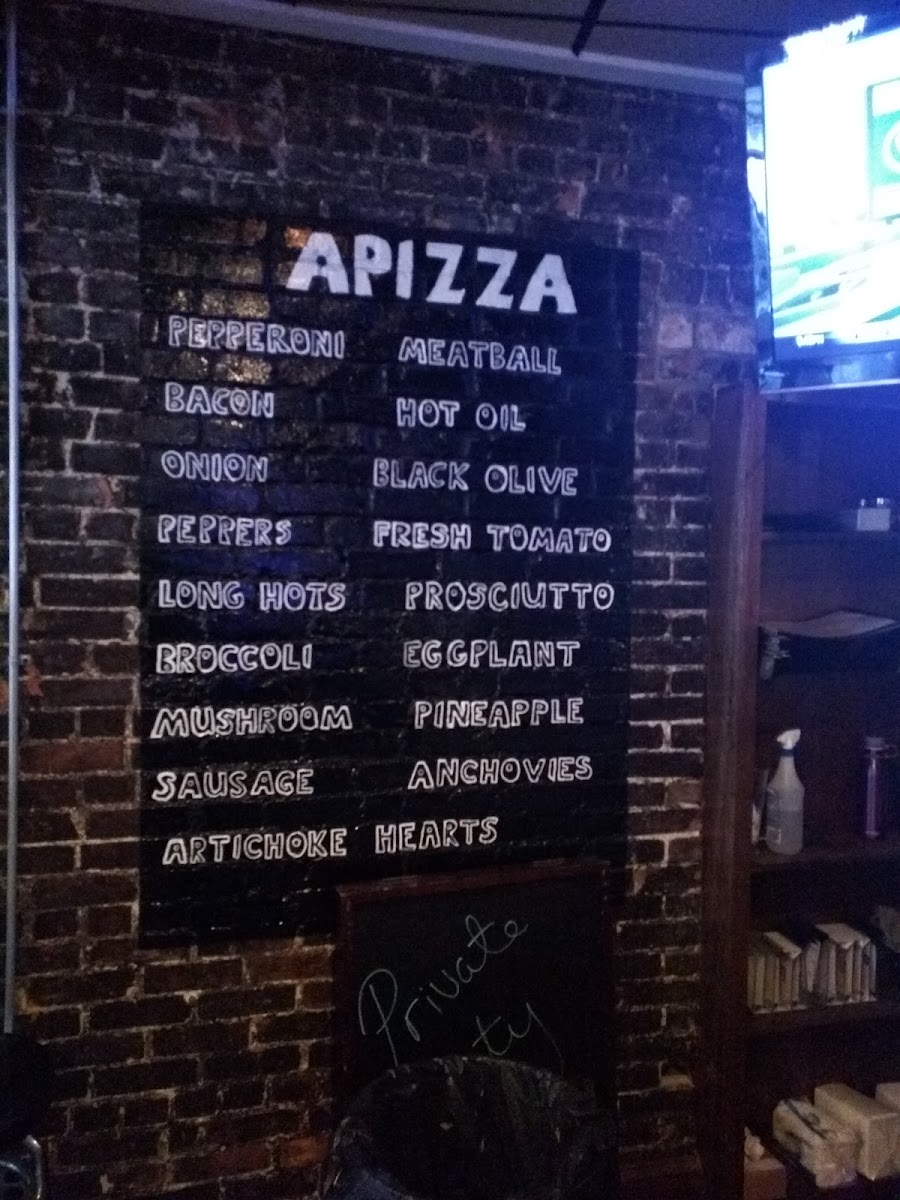 APIZZA
PEPPERONI MEATBALL
BACON HOT OIL
ONION BLACK OLIVE
PEPPERS FRESH TOMATO
LONG HOTS PROSCIUTTO
BROCCOLI EGGPLANT
MUSHROOM PINEAPPLE
SAUSAGE ANCHOVIES
ARTICHOKE HEARTS
Private